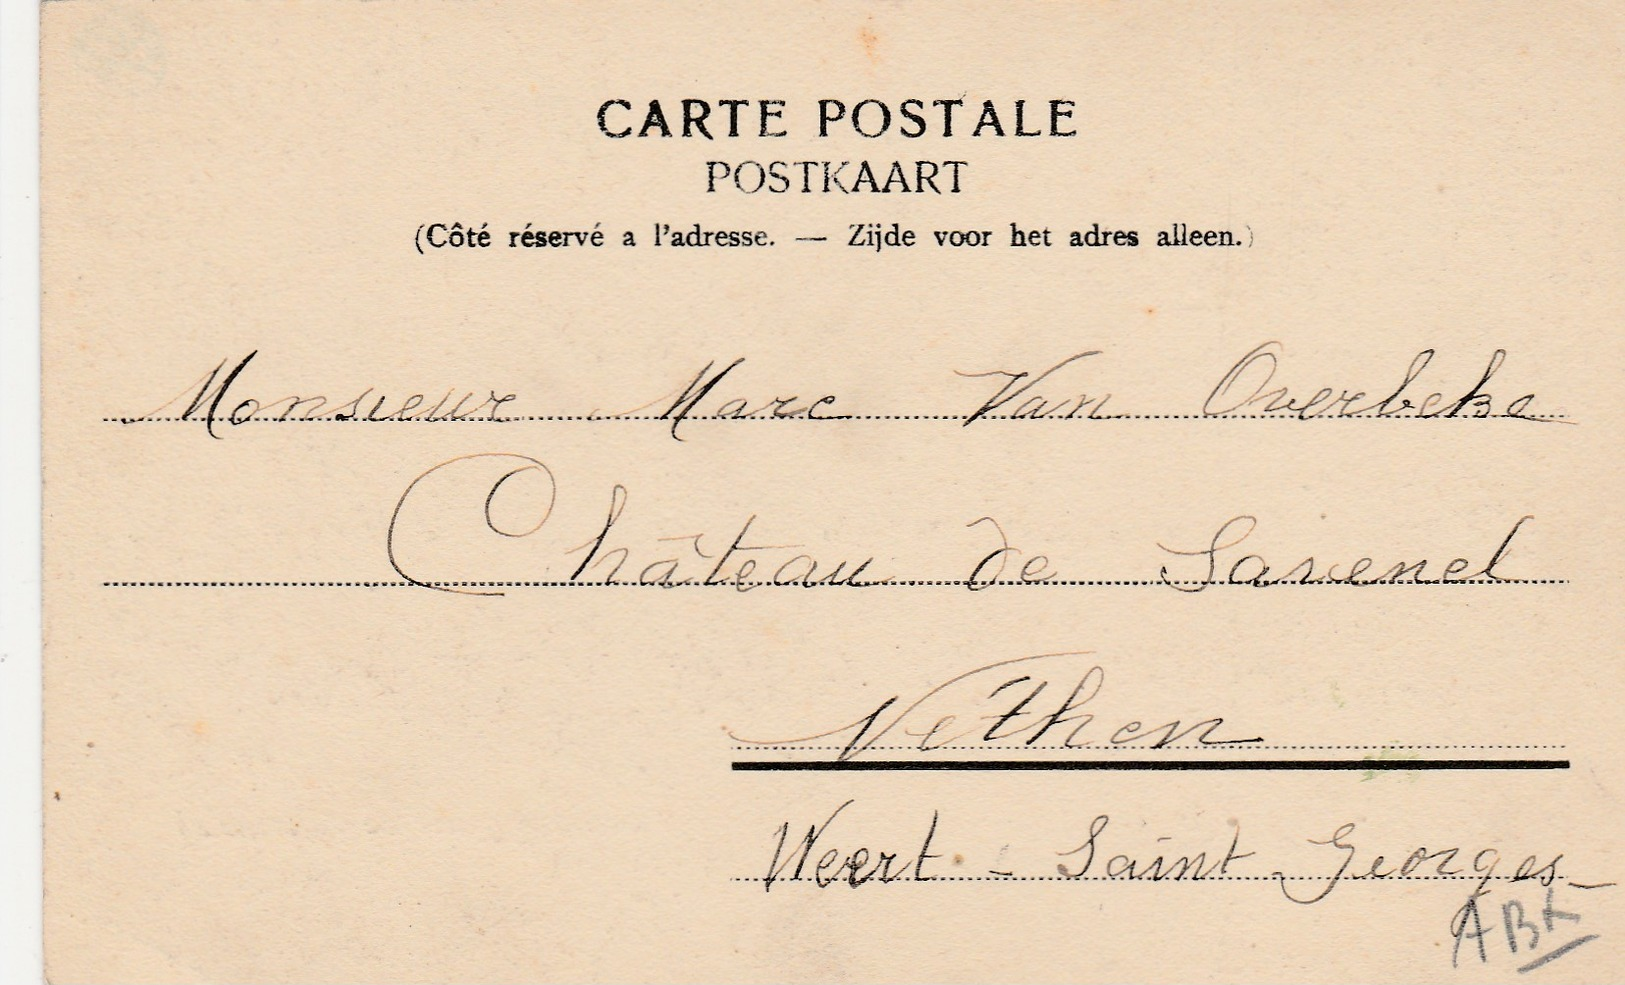 CARTE POSTALE
POSTKAART
(Côté réservé a l'adresse. — Zijde voor het adres alleen.)
Monsieur Marc Van Overbeke
Château de Savenel
Néthen
Weert - Saint Georges
ABK